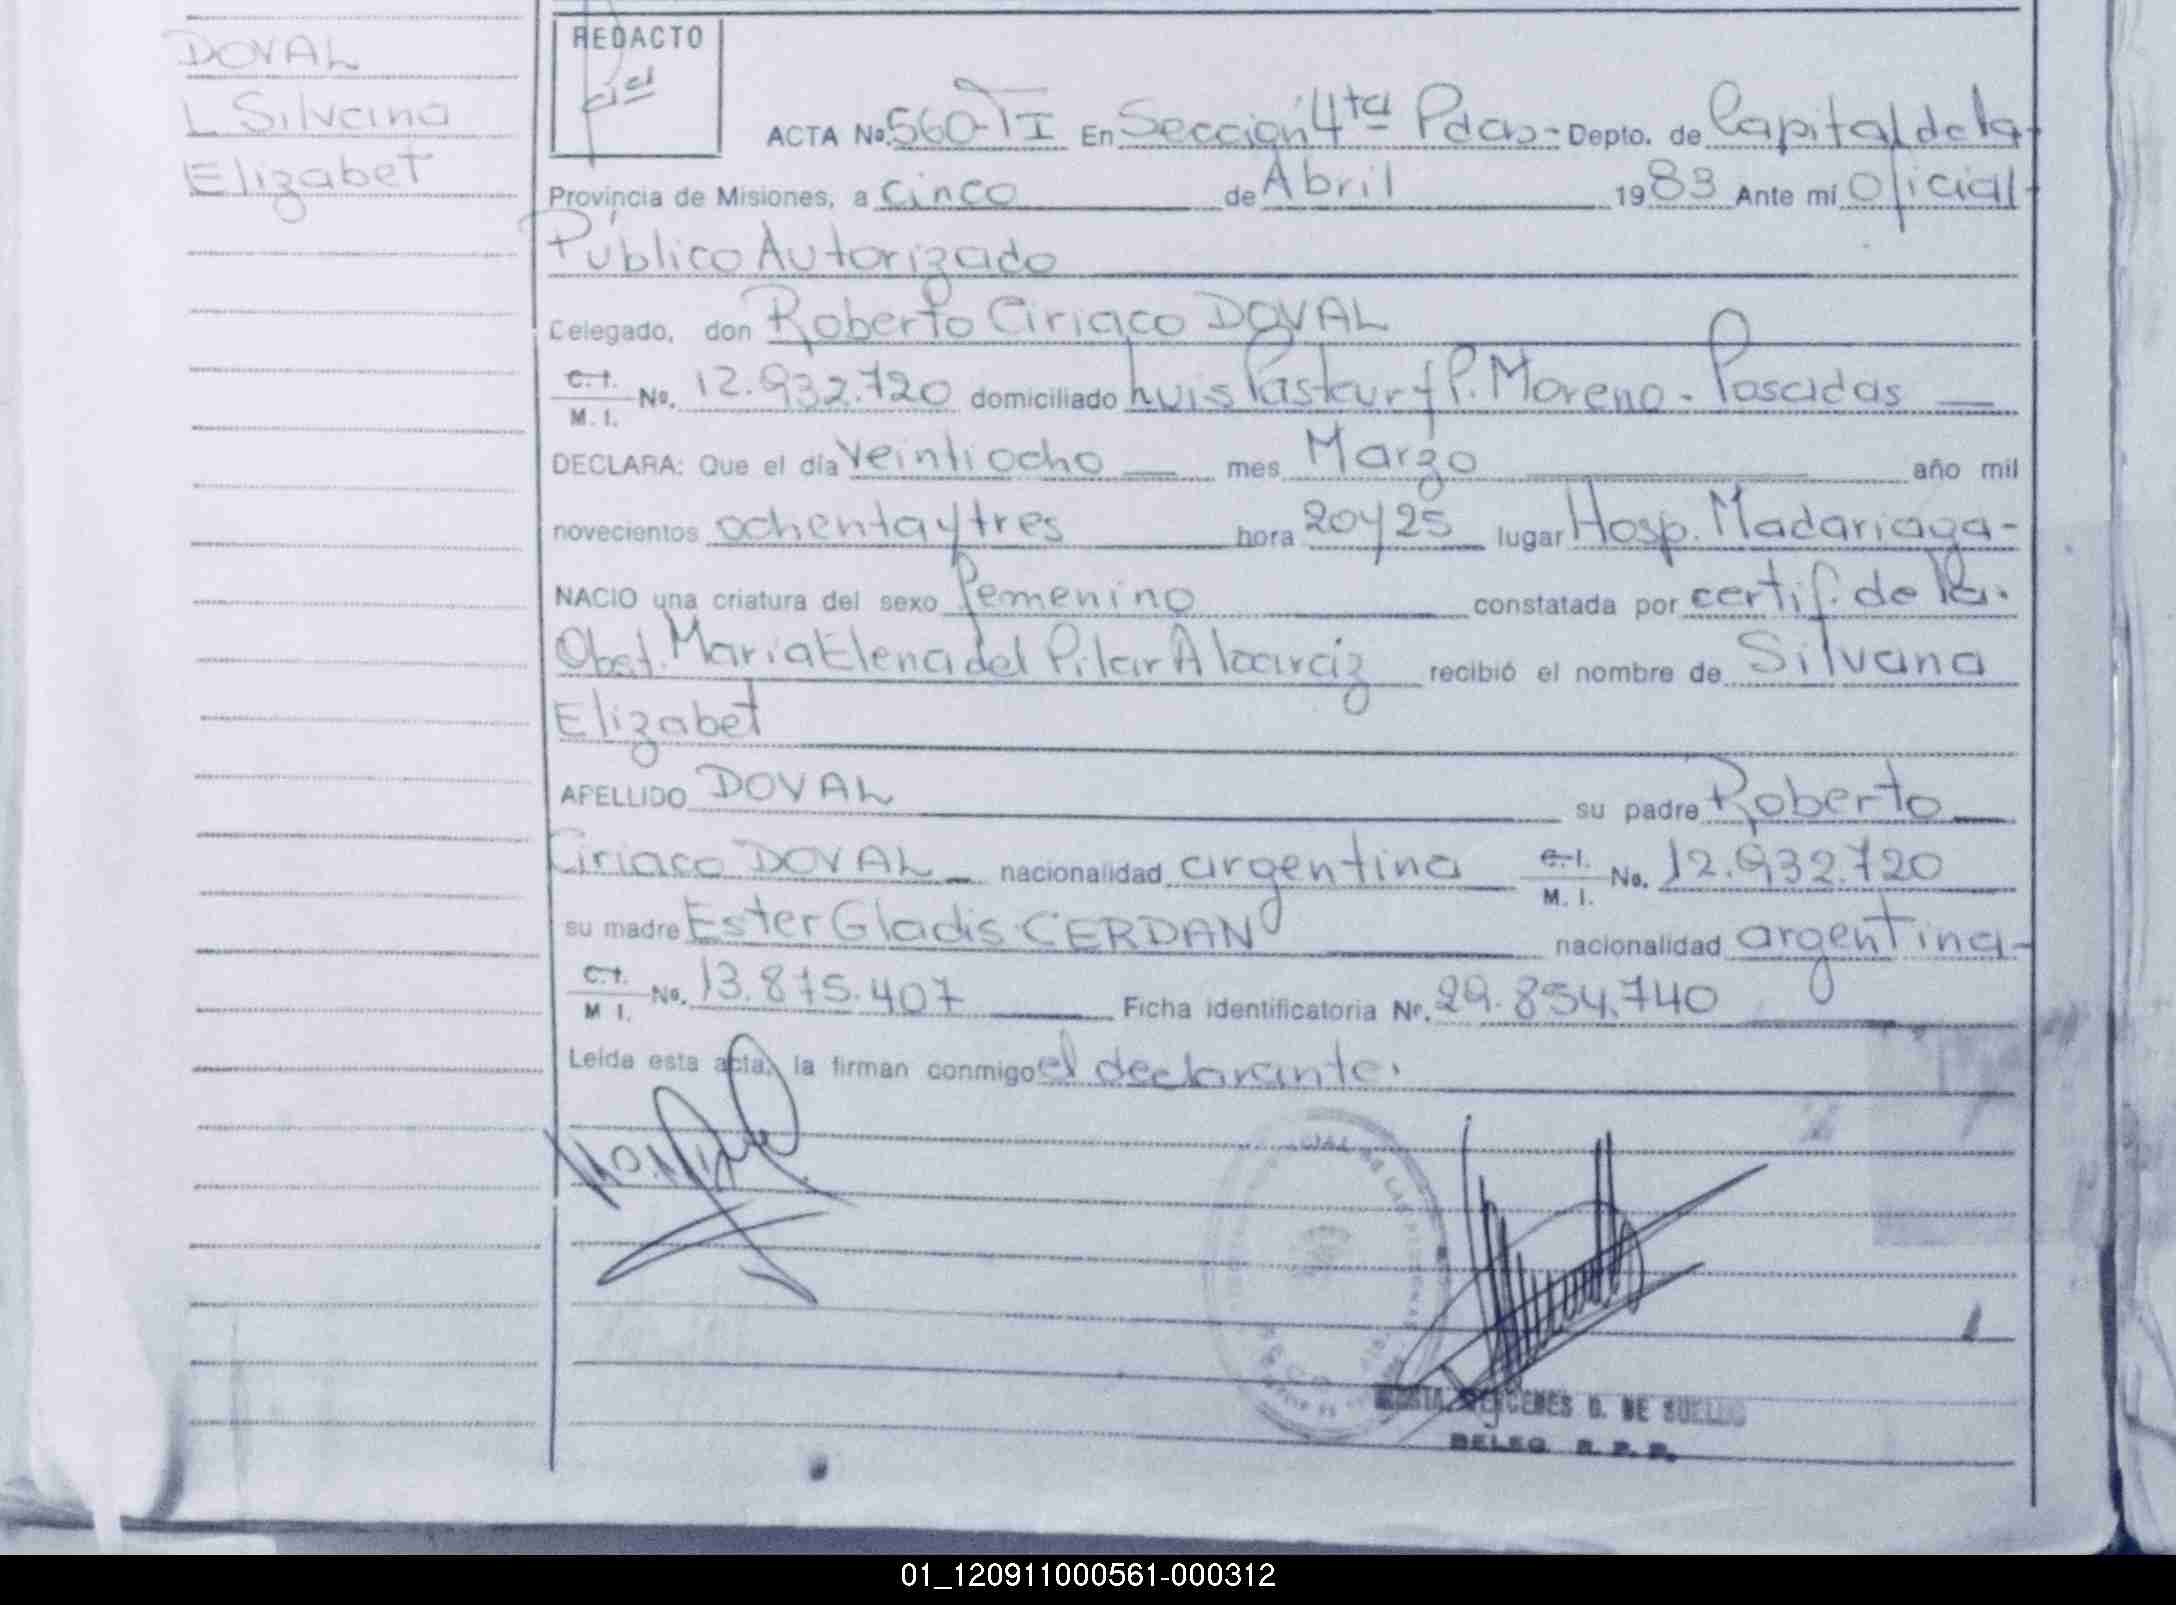 DOVAL
L Silvana
Elizabet
REDACTO
ACTA No. 560-TI En Sección 4ta Pdas- Depto. de Capital de la-
Provincia de Misiones, a cinco de Abril 1983 Ante mí Oficial-
Público Autorizado
Delegado, don Roberto Ciriaco DOVAL
C.I. M.I. No. 12.932.720 domiciliado Luis Pasteur y P. Moreno - Posadas
DECLARA: Que el día Veintiocho mes Marzo año mil
novecientos ochenta y tres hora 20 y 25 lugar Hosp. Madariaga-
NACIO una criatura del sexo femenino constatada por certif. de la
Obst. Maria Elena del Pilar Alcaraz recibió el nombre de Silvana
Elizabet
APELLIDO DOVAL su padre Roberto
Ciriaco DOVAL nacionalidad argentina C.I. M.I. No. 12.932.720
su madre Ester Gladis CERDAN nacionalidad argentina-
C.I. M I. No. 13.875.407 Ficha identificatoria Nr. 29.854.740
Leída esta acta, la firman conmigo el declarante.
DE LAS PERSONAS
D. DE SUELDO
DELEG. R. P. P.
01_120911000561-000312